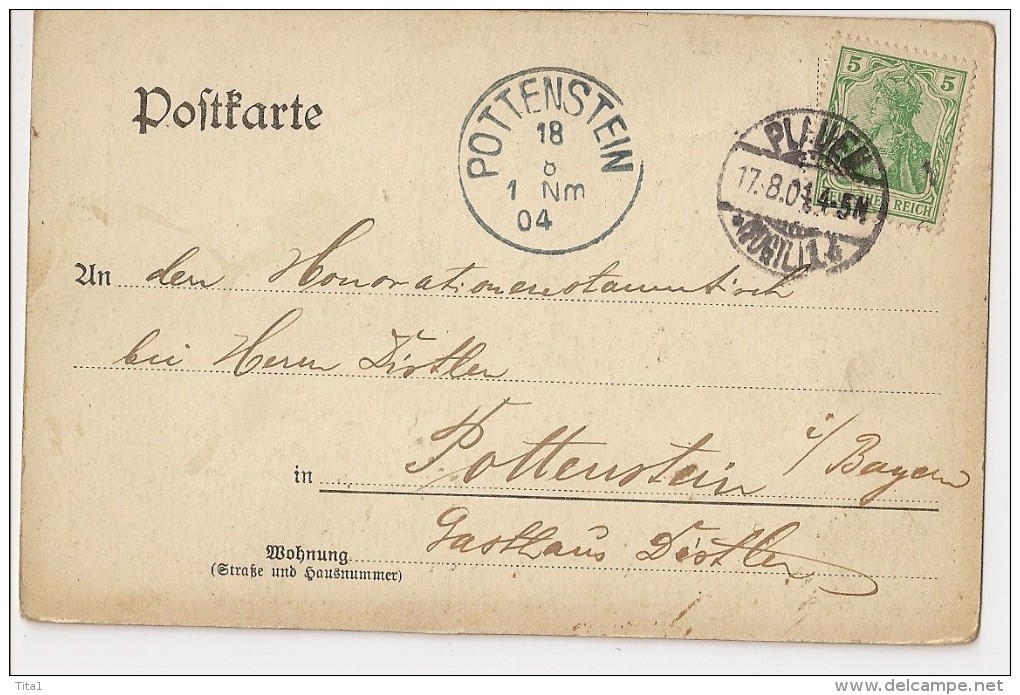 Postkarte
POTTENSTEIN
18
8
1 Nm
04
5 5
REICH
PLAUEN
17.8.04. 4-5N
*(VOGTL.)1.
An den Honorationenstammtisch
bei Herrn Distler
in Pottenstein i/Bayern
Wohnung Gasthaus Distler
(Straße und Hausnummer)
Tita1
delcampe.net